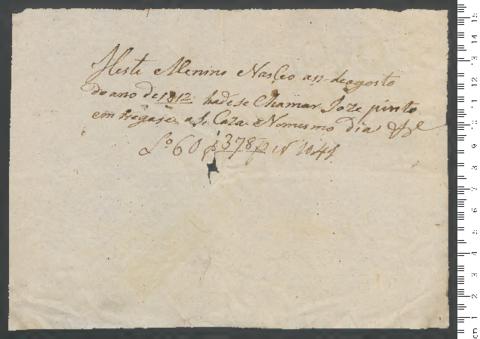 Heste Menino Nasceo a 12 de agosto
do ano de 1812 hade se Chamar Joze pinto
em tregase a S. Caza Nomesmo dia &
L.º 60 f 378 N 1041
cm 1 2 3 4 5 6 7 8 9 10 11 12 13 14 15